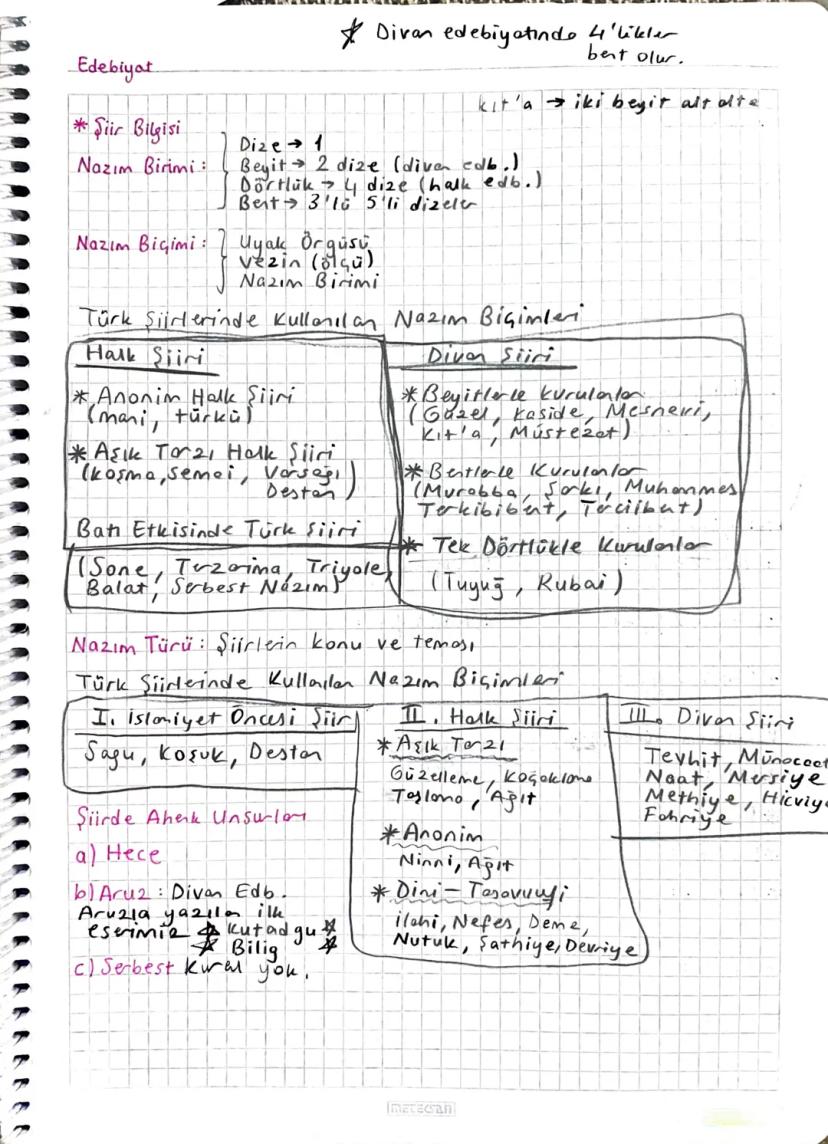 ★ Divan edebiyatında 4'likler
bent olur.
Edebiyat
kıt'a → iki beyit alt alta
* Şiir Bilgisi
Dize → 1
Nazım Birimi: Beyit → 2 dize (divan edb.)
Dörtlük → 4 dize (halk edb.)
Bent → 3'lü 5'li dizeler
Nazım Biçimi: Uyak Örgüsü
Vezin (ölçü)
Nazım Birimi
Türk Şiirlerinde Kullanılan Nazım Biçimleri
Halk Şiiri
* Anonim Halk Şiiri
(mani, türkü)
* Aşık Tarzı Halk Şiiri
(koşma, semai, Varsağı
Destan)
Batı Etkisinde Türk Şiiri
(Sone, Terzarima, Triyole,
Balat, Serbest Nazım)
Divan Şiiri
* Beyitlerle kurulanlar
(Gazel, kaside, Mesnevi,
Kıt'a, Müstezat)
* Bentlerle Kurulanlar
(Murabba, Şarkı, Muhammes
Terkibibent, Terciibent)
* Tek Dörtlükle Kurulanlar
(Tuyuğ, Rubai)
Nazım Türü: Şiirlerin konu ve teması
Türk Şiirlerinde Kullanılan Nazım Biçimleri
I. İslamiyet Öncesi Şiir
Sagu, Koşuk, Destan
II. Halk Şiiri
* Aşık Tarzı
Güzelleme, Koçaklama
Taşlama, Ağıt
* Anonim
Ninni, Ağıt
* Dini - Tasavvufi
ilahi, Nefes, Deme,
Nutuk, Şathiye, Devriye
III. Divan Şiiri
Tevhit, Münacaat
Naat, Mersiye
Methiye, Hicviye
Fahriye
Şiirde Ahenk Unsurları
a) Hece
b) Aruz: Divan Edb.
Aruzla yazılan ilk
eserimiz ★ Kutadgu ★
★ Bilig ★
c) Serbest kural yok.
METEKSAN